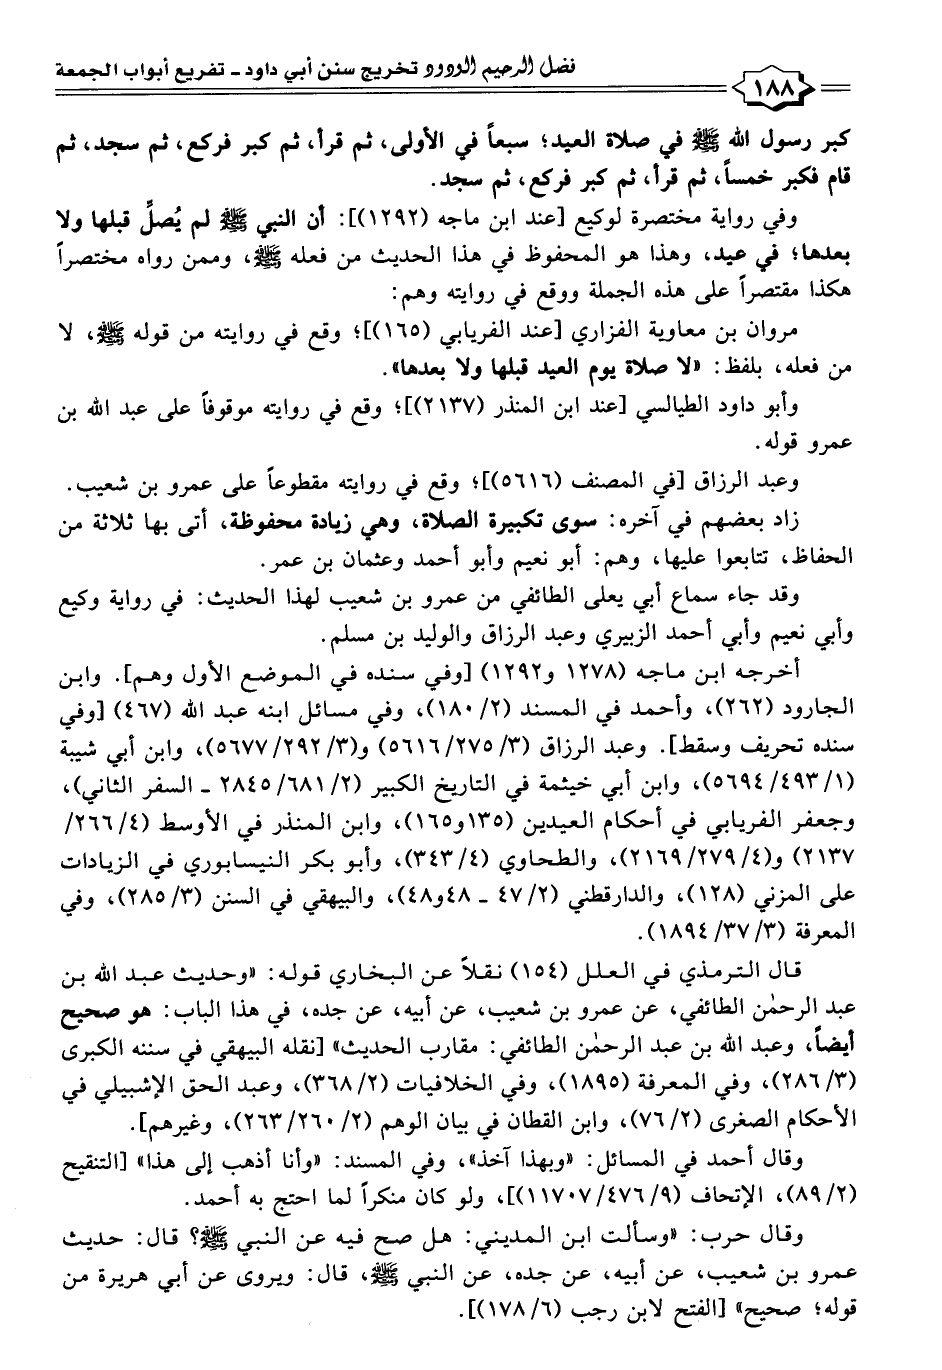 فضل الرحيم الودود تخريج سنن أبي داود ـ تفريع أبواب الجمعة
١٨٨
كبر رسول الله ﷺ في صلاة العيد؛ سبعاً في الأولى، ثم قرأ، ثم كبر فركع، ثم سجد، ثم
قام فكبر خمساً، ثم قرأ، ثم كبر فركع، ثم سجد.
وفي رواية مختصرة لوكيع [عند ابن ماجه (١٢٩٢)]: أن النبي ﷺ لم يُصلِّ قبلها ولا
بعدها؛ في عيد، وهذا هو المحفوظ في هذا الحديث من فعله ﷺ، وممن رواه مختصراً
هكذا مقتصراً على هذه الجملة ووقع في روايته وهم:
مروان بن معاوية الفزاري [عند الفريابي (١٦٥)]؛ وقع في روايته من قوله ﷺ، لا
من فعله، بلفظ: «لا صلاة يوم العيد قبلها ولا بعدها».
وأبو داود الطيالسي [عند ابن المنذر (٢١٣٧)]؛ وقع في روايته موقوفاً على عبد الله بن
عمرو قوله.
وعبد الرزاق [في المصنف (٥٦١٦)]؛ وقع في روايته مقطوعاً على عمرو بن شعيب.
زاد بعضهم في آخره: سوى تكبيرة الصلاة، وهي زيادة محفوظة، أتى بها ثلاثة من
الحفاظ، تتابعوا عليها، وهم: أبو نعيم وأبو أحمد وعثمان بن عمر.
وقد جاء سماع أبي يعلى الطائفي من عمرو بن شعيب لهذا الحديث: في رواية وكيع
وأبي نعيم وأبي أحمد الزبيري وعبد الرزاق والوليد بن مسلم.
أخرجه ابن ماجه (١٢٧٨ و١٢٩٢) [وفي سنده في الموضع الأول وهم]. وابن
الجارود (٢٦٢)، وأحمد في المسند (٢/ ١٨٠)، وفي مسائل ابنه عبد الله (٤٦٧) [وفي
سنده تحريف وسقط]. وعبد الرزاق (٣/ ٢٧٥/ ٥٦١٦) و(٣/ ٢٩٢/ ٥٦٧٧)، وابن أبي شيبة
(١/ ٤٩٣/ ٥٦٩٤)، وابن أبي خيثمة في التاريخ الكبير (٢/ ٦٨١/ ٢٨٤٥ ـ السفر الثاني)،
وجعفر الفريابي في أحكام العيدين (١٣٥ و١٦٥)، وابن المنذر في الأوسط (٤/ ٢٦٦/
٢١٣٧) و(٤/ ٢٧٩/ ٢١٦٩)، والطحاوي (٤/ ٣٤٣)، وأبو بكر النيسابوري في الزيادات
على المزني (١٢٨)، والدارقطني (٢/ ٤٧ ـ ٤٨ و٤٨)، والبيهقي في السنن (٣/ ٢٨٥)، وفي
المعرفة (٣/ ٣٧/ ١٨٩٤).
قال الترمذي في العلل (١٥٤) نقلاً عن البخاري قوله: «وحديث عبد الله بن
عبد الرحمٰن الطائفي، عن عمرو بن شعيب، عن أبيه، عن جده، في هذا الباب: هو صحيح
أيضاً، وعبد الله بن عبد الرحمٰن الطائفي: مقارب الحديث» [نقله البيهقي في سننه الكبرى
(٣/ ٢٨٦)، وفي المعرفة (١٨٩٥)، وفي الخلافيات (٢/ ٣٦٨)، وعبد الحق الإشبيلي في
الأحكام الصغرى (٢/ ٧٦)، وابن القطان في بيان الوهم (٢/ ٢٦٠/ ٢٦٣)، وغيرهم].
وقال أحمد في المسائل: «وبهذا آخذ»، وفي المسند: «وأنا أذهب إلى هذا» [التنقيح
(٢/ ٨٩)، الإتحاف (٩/ ٤٧٦/ ١١٧٠٧)]، ولو كان منكراً لما احتج به أحمد.
وقال حرب: «وسألت ابن المديني: هل صح فيه عن النبي ﷺ؟ قال: حديث
عمرو بن شعيب، عن أبيه، عن جده، عن النبي ﷺ، قال: ويروى عن أبي هريرة من
قوله؛ صحيح» [الفتح لابن رجب (٦/ ١٧٨)].